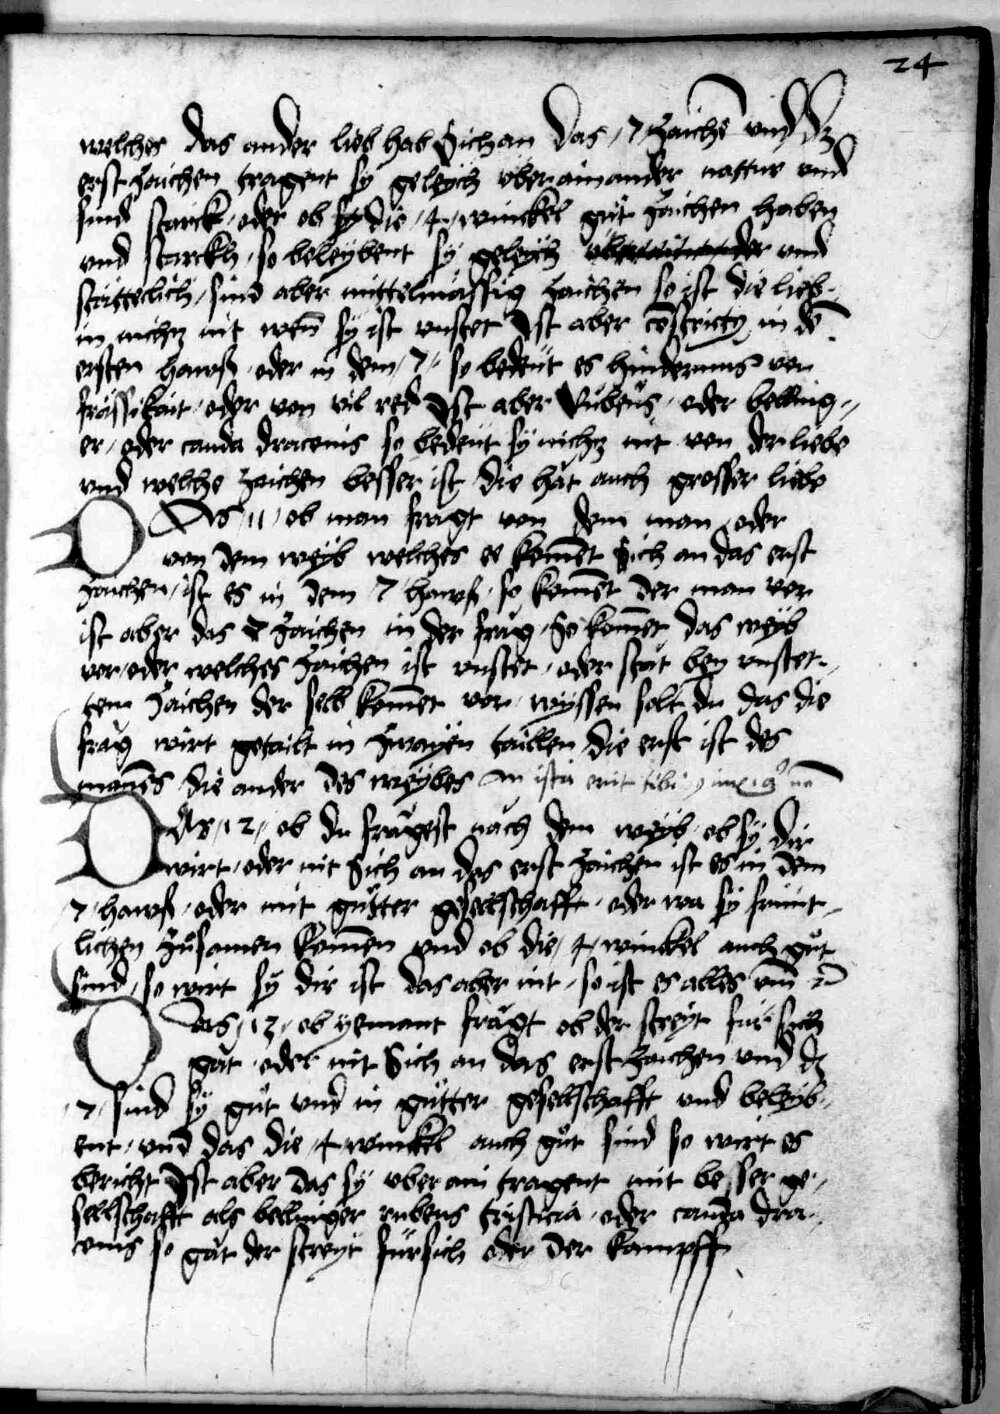 24
welches das ander lieb hab Sich an das /7/ zaichē vnd dz
erst zaichen tragent sy geleych vber ainander nattur vnd
sind starck / oder ob sy die /4/ winckel gůt zaichen haben
vnd starckh / so beleybent sy geleych vber ainander vnd
stättelich / sind aber mittelmässig zaichen so ist die lieb
in nichtz nit wen̄ sy ist vnstet Ist aber cōstricty in dē
ersten hawß / oder in dem /7/ so bedeüt es hindernus von
frässikait / oder von vil red Ist aber Rubeüs / oder belling
er / oder cauda draconis so bedeüt sy nichtz nit von der liebe
vnd welche zaichen besser ist / die hat auch grosser liebe
Das /11/ ob man fragt von dem man oder
von dem weyb welches ee kom̄et Sich an das erst
zaichen / ist es in dem 7 hawß / so kom̄et der man vor
ist aber das 7 zaichen in der frag / So kom̄et das weyb
vor / oder welches zaichen ist vnstet / oder stät bey vnstet
tem zaichen der selb kom̄et vor / wyssen solt du das die
frag wirt getailt in zwayen taillen die erst ist des
man̄es die ander des weybes an ista erit tibi
Das /12/ ob du fragest nach dem weyb / ob sy dir
wirt / oder nit Sich an das erst zaichen ist es in dem
7 hawß / oder mit gůtter gesellschafft / oder wa sy frünt
lichen zůsamen kom̄en vnd ob die /4/ winckel auch gůt
sind / so wirt sy dir ist das aber nit / so ist es alles vm̄
Das /13/ ob yemant fragt ob der streyt für sich
gat / oder nit Sich an das erst zaichen vnd dz
/7/ sind sy gůt vnd in gůtter gesellschafft vnd beleyb
ent / vnd das die /4/ winckel auch gůt sind so wirt es
bericht Ist aber das sy vber ain tragent mit besser ge
sellschafft als bellinger rubeus tristicia / oder cauda dra
conis so gat der streyt fürsich oder der kampff